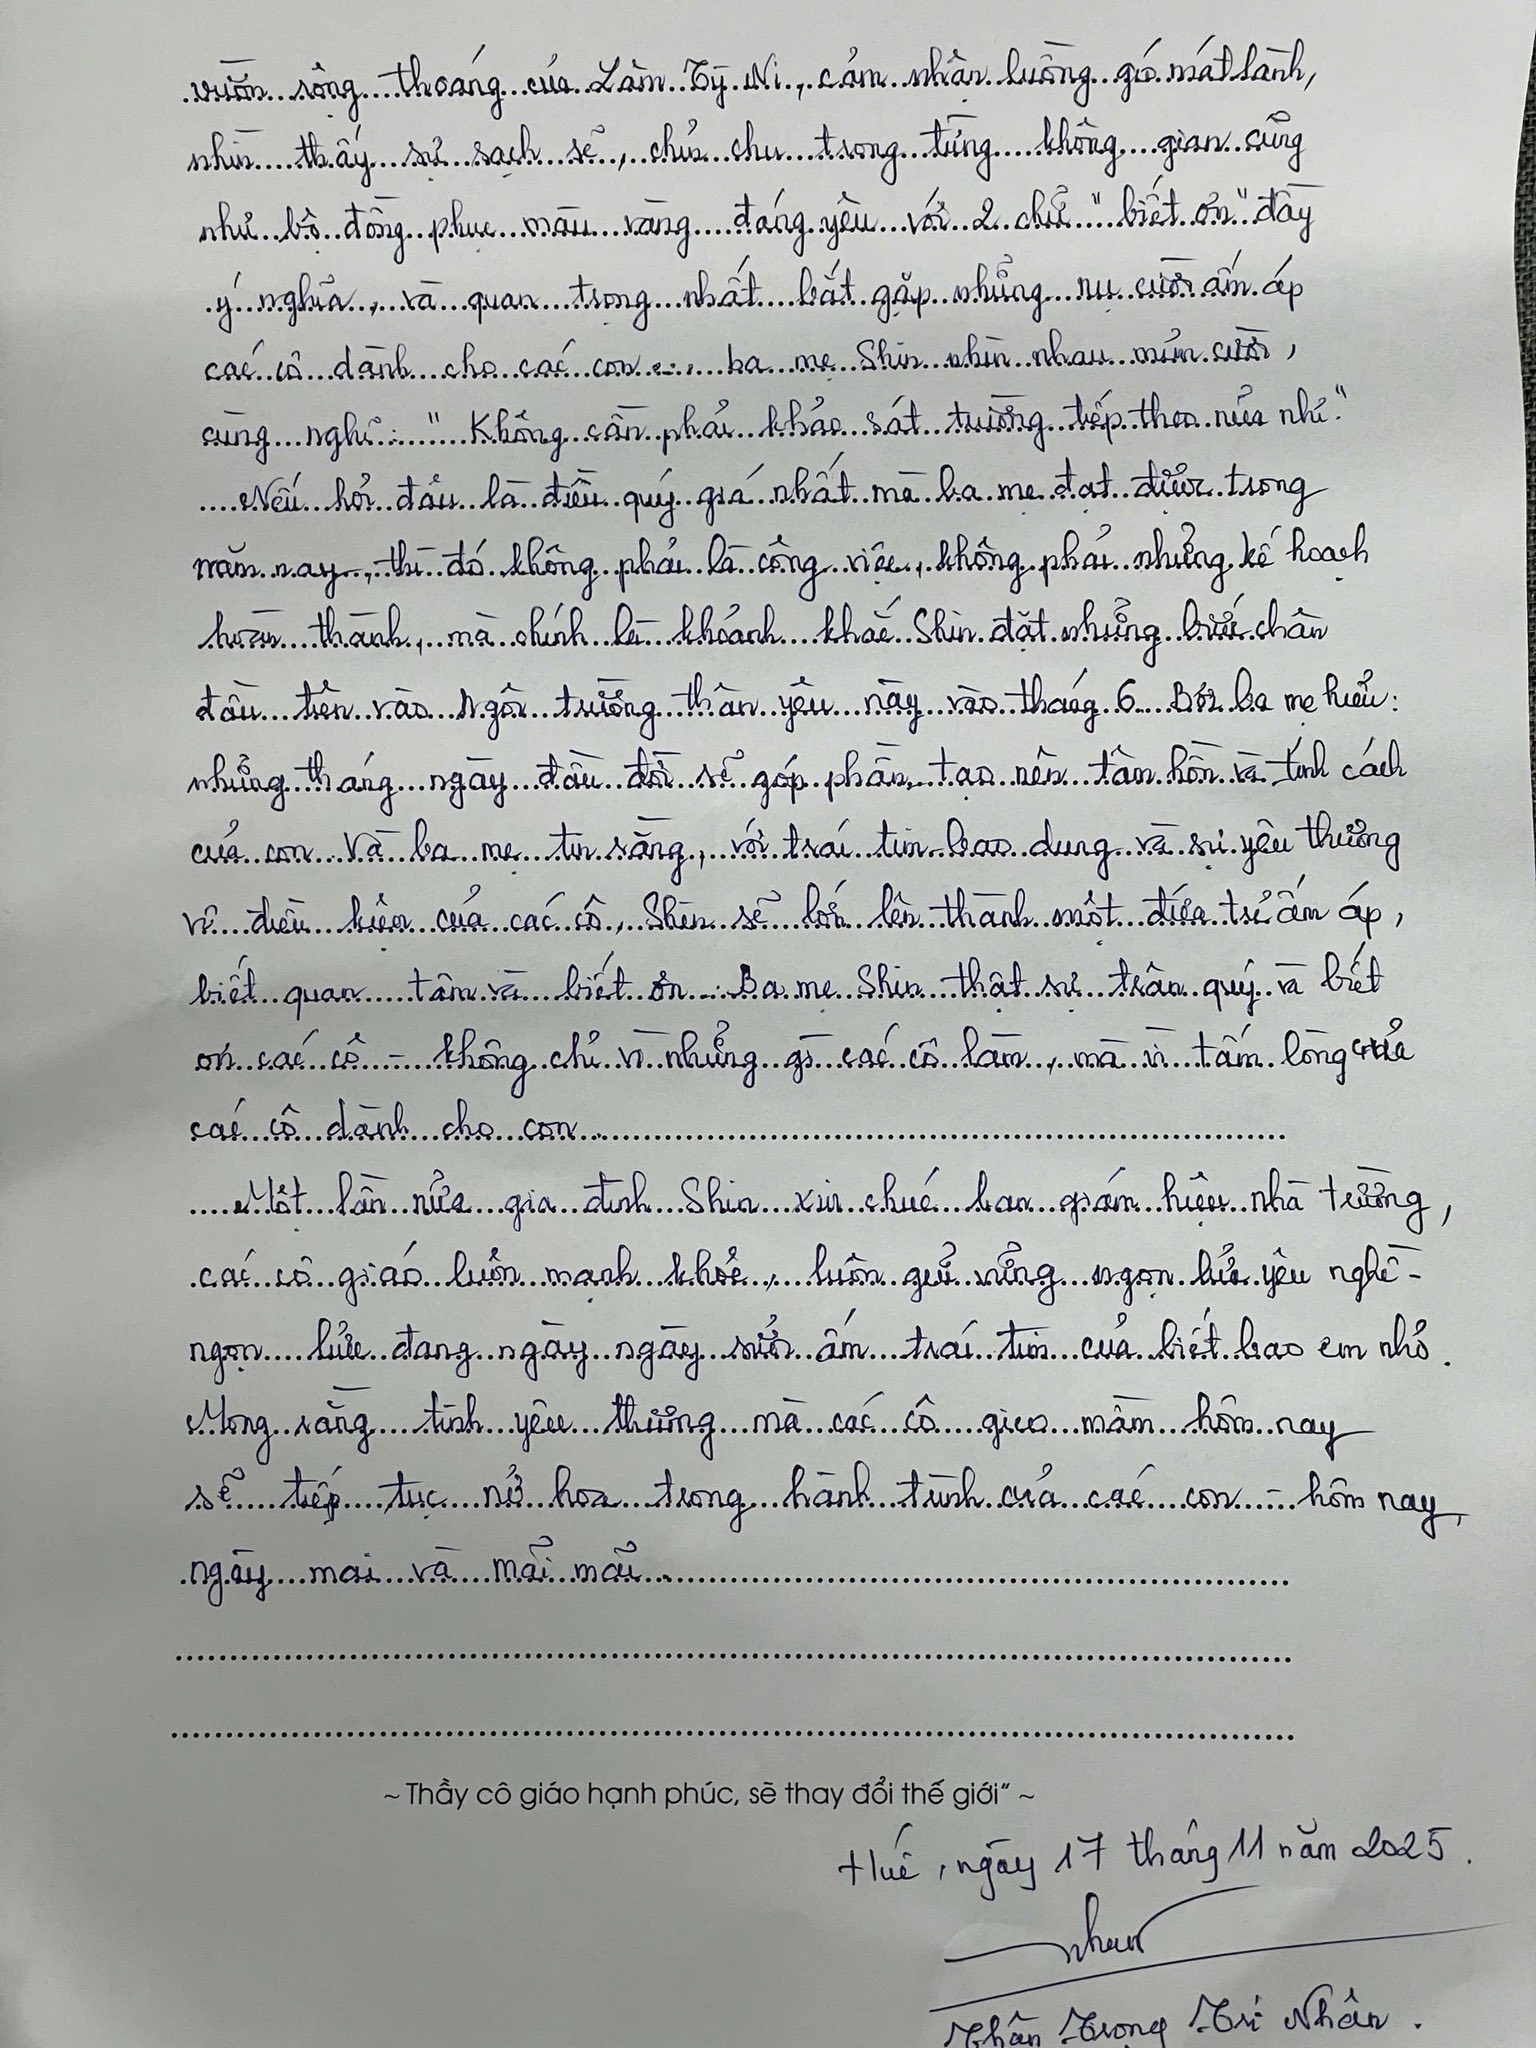 vườn rộng thoáng của Lâm Tỳ Ni, cảm nhận luồng gió mát lành,
nhìn thấy sự sạch sẽ, chỉn chu trong từng không gian cũng
như bộ đồng phục màu vàng đáng yêu với 2 chữ "biết ơn" đầy
ý nghĩa, và quan trọng nhất bắt gặp những nụ cười ấm áp
các cô dành cho các con..., ba mẹ Shin nhìn nhau mỉm cười,
cùng nghĩ: "Không cần phải khảo sát trường tiếp theo nữa nhỉ."
Nếu hỏi đâu là điều quý giá nhất mà ba mẹ đạt được trong
năm nay, thì đó không phải là công việc, không phải những kế hoạch
hoàn thành, mà chính là khoảnh khắc Shin đặt những bước chân
đầu tiên vào ngôi trường thân yêu này vào tháng 6. Bởi ba mẹ hiểu:
những tháng ngày đầu đời sẽ góp phần tạo nên tâm hồn và tính cách
của con. Và ba mẹ tin rằng, với trái tim bao dung và sự yêu thương
vô điều kiện của các cô, Shin sẽ lớn lên thành một đứa trẻ ấm áp,
biết quan tâm và biết ơn. Ba mẹ Shin thật sự trân quý và biết
ơn các cô - không chỉ vì những gì các cô làm, mà vì tấm lòng của
các cô dành cho con.
Một lần nữa gia đình Shin xin chúc ban giám hiệu nhà trường,
các cô giáo luôn mạnh khoẻ, luôn giữ vững ngọn lửa yêu nghề -
ngọn lửa đang ngày ngày sưởi ấm trái tim của biết bao em nhỏ.
Mong rằng tình yêu thương mà các cô gieo mầm hôm nay
sẽ tiếp tục nở hoa trong hành trình của các con - hôm nay,
ngày mai và mãi mãi.
~ Thầy cô giáo hạnh phúc, sẽ thay đổi thế giới" ~
Huế, ngày 17 tháng 11 năm 2025.
Nhân
Thân Trọng Trí Nhân.